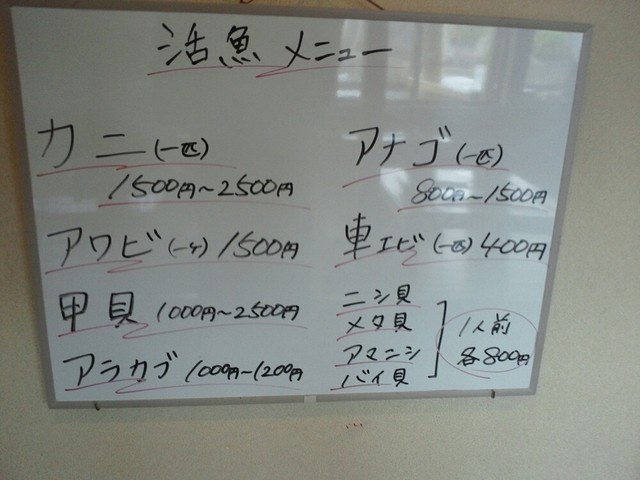 活魚メニュー
カニ(一匹)
1500円～2500円
アワビ(一ケ) 1500円
甲貝 1000円～2500円
アラカブ 1000円～1200円
アナゴ(一匹)
800円～1500円
車エビ(一匹) 400円
ニシ貝
メタ貝
アマニシ
バイ貝
1人前
各800円